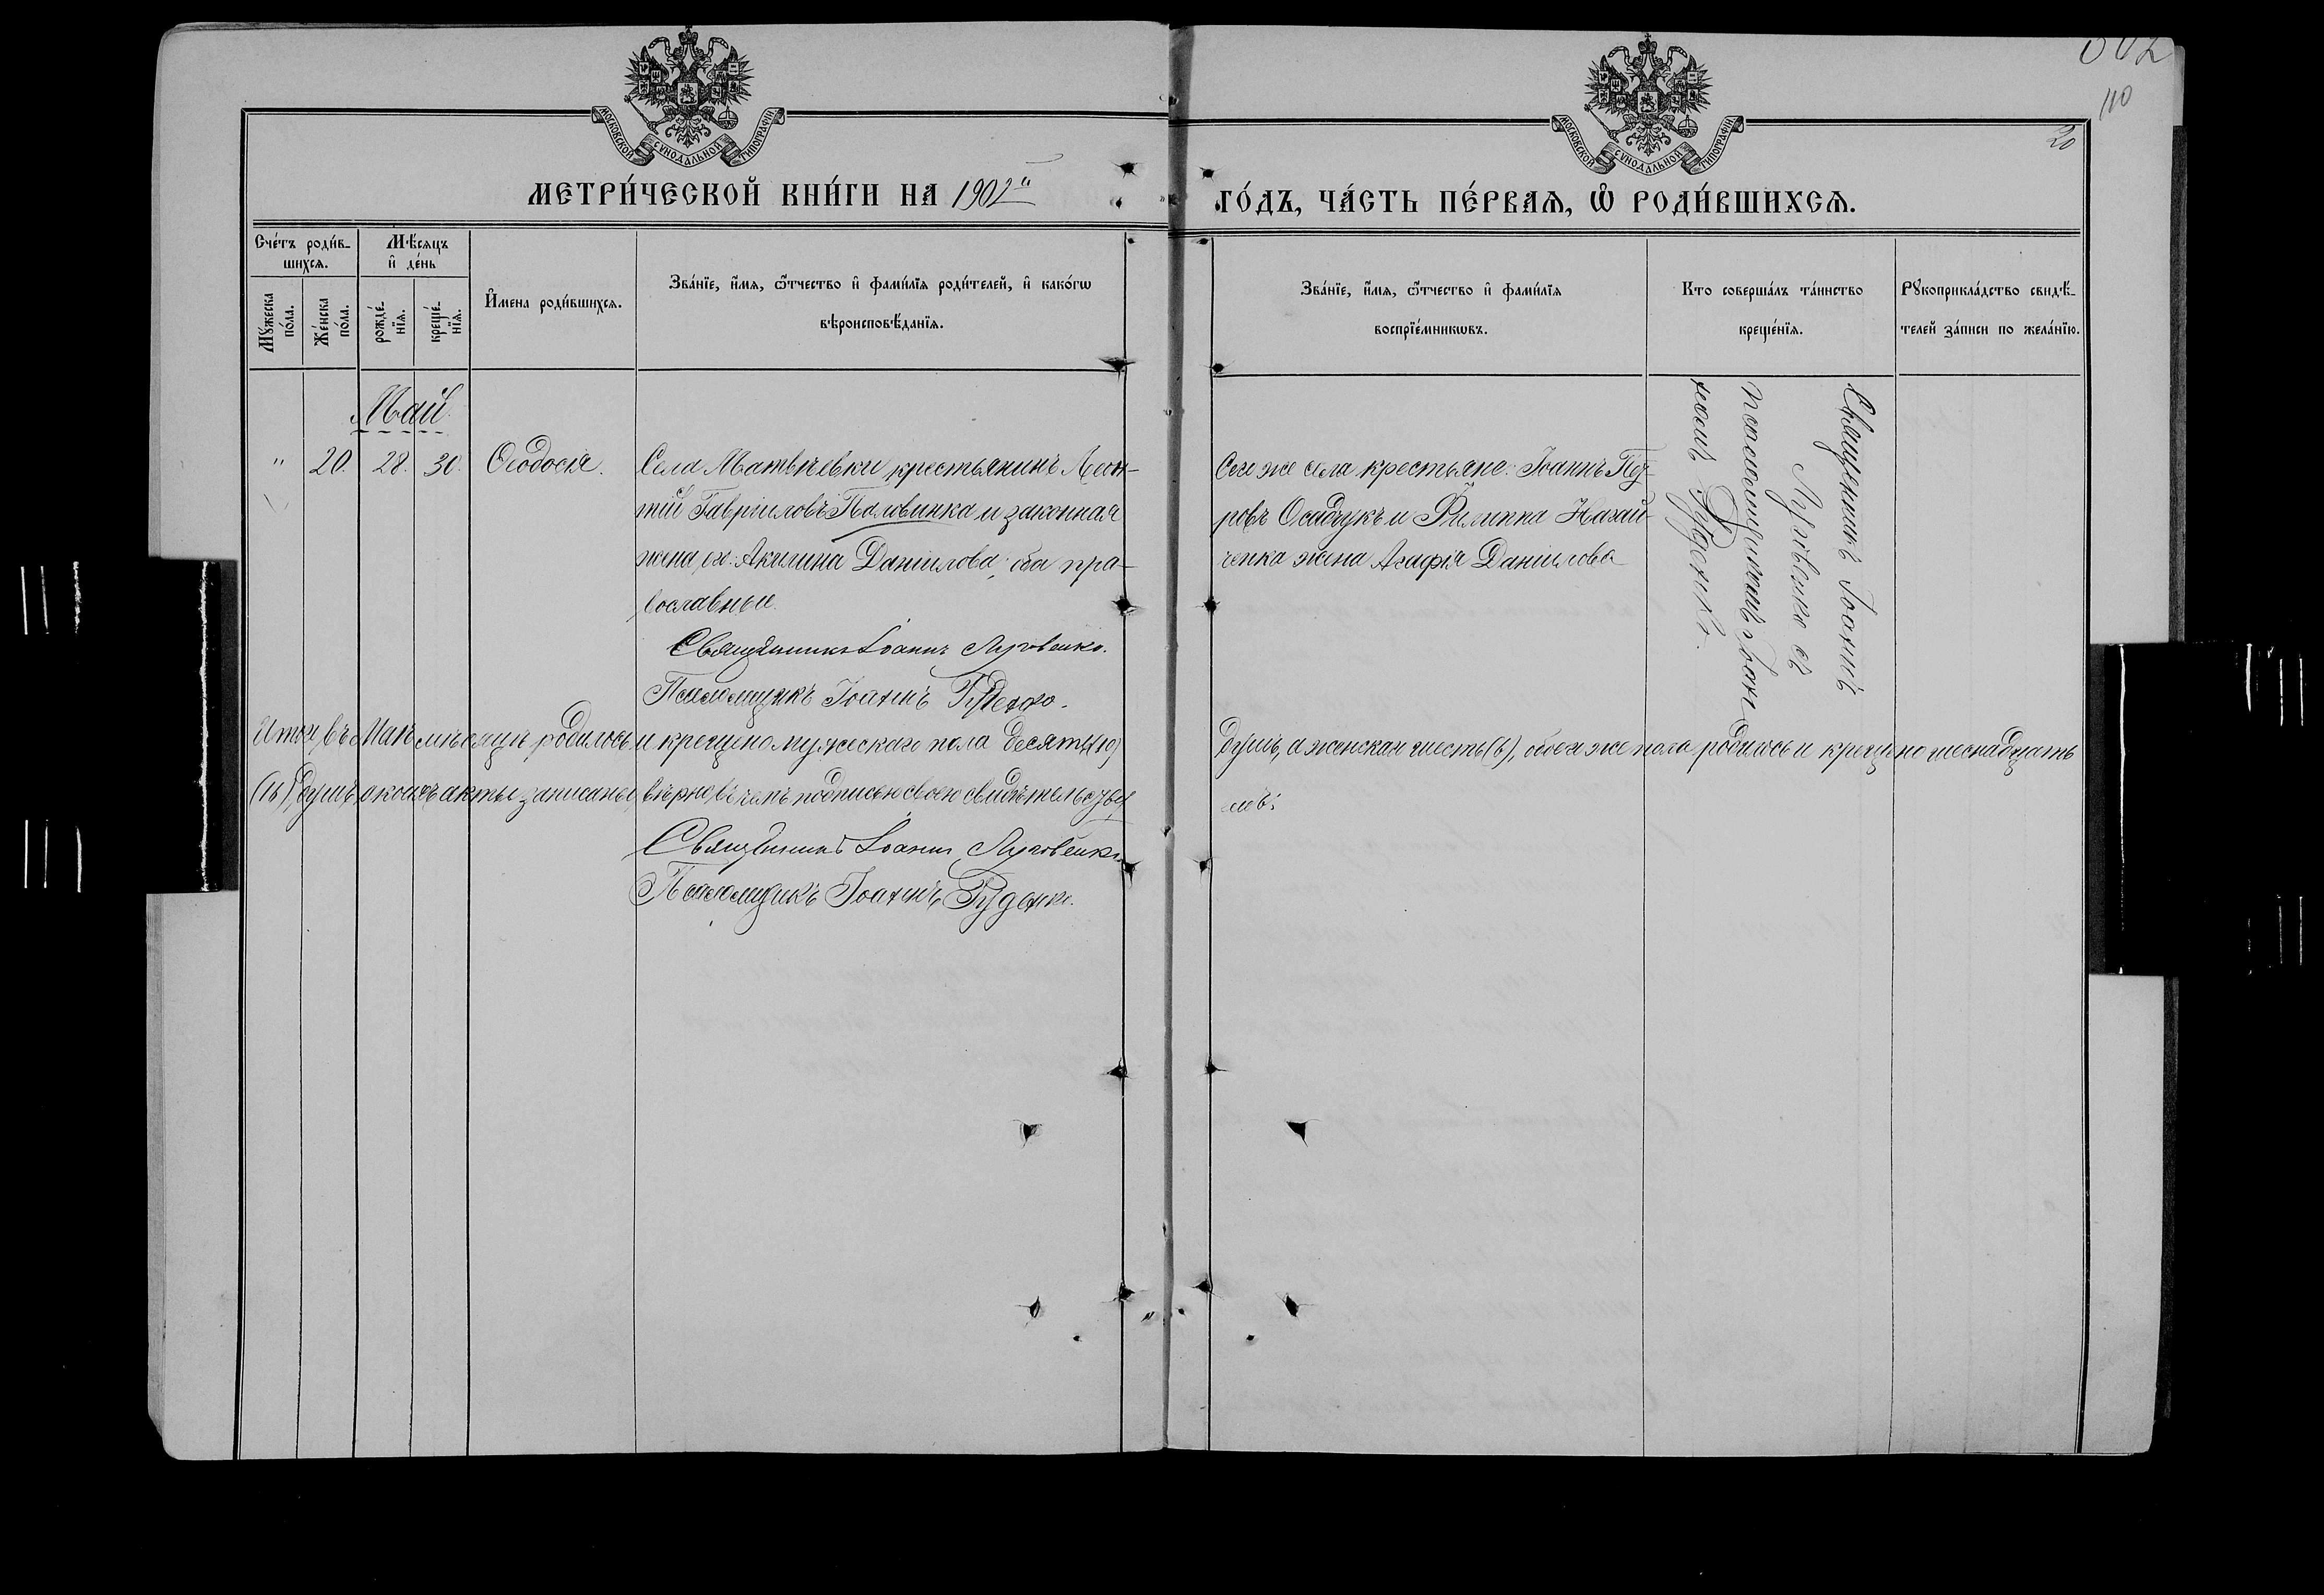 110
20
МОСКОВСКОЙ СѴНОДАЛЬНОЙ ТИПОГРАФІИ
МОСКОВСКОЙ СѴНОДАЛЬНОЙ ТИПОГРАФІИ
МЕТРИ́ЧЕСКОЙ КНИ́ГИ НА 1902й
ГО́ДЪ, ЧА́СТЬ ПЕ́РВАѦ, Ѡ҆ РОДИ́ВШИХСѦ.
Сче́тъ роди́в-
шихсѧ.
Мꙋ́жеска
по́ла.
Же́нска
по́ла.
Мѣ́сяцъ
и҆ де́нь
рожде́-
нїѧ.
креще́-
нїѧ.
И҆мена роди́вшихсѧ.
Зва́нїе, и҆́мѧ, ѻ҆́тчество и҆ фами́лїѧ роди́телей, и҆ како́гѡ
вѣроисповѣ́данїѧ.
Зва́нїе, и҆́мѧ, ѻ҆́тчество и҆ фами́лїѧ
воспрїе́мникѡвъ.
Кто соверша́лъ та́инство
креще́нїѧ.
Рꙋкоприкла́дство свидѣ́-
телей за́писи по жела́нїю.
Май.
" 20. 28. 30. Ѳеодосія.
Села Матвѣевки крестьянинъ Леон-
тій Гавріиловъ Половинка и законная
жена его Акилина Даніилова; оба пра-
вославные.
Священникъ Іоаннъ Луговенко.
Псаломщикъ Іоаннъ Руденко.
Того же села крестьяне: Іоаннъ
ровъ Осадчукъ и Филиппа Нагай-
ченка жена Агафія Даніилова
Священникъ Іоаннъ
Луговенко съ
псаломщикомъ Іоан-
номъ Руденко.
Итого въ Маѣ мѣсяцѣ родилось и крещено мужескаго пола десять (10)
душъ, а женскаго шесть (6), обоего же пола родилось и крещено шеснадцать
(16) душъ, о коихъ акты записаны вѣрно, въ чемъ подписью своею свидѣтельствуемъ:
Священникъ Іоаннъ Луговенко
Псаломщикъ Іоаннъ Руденко.